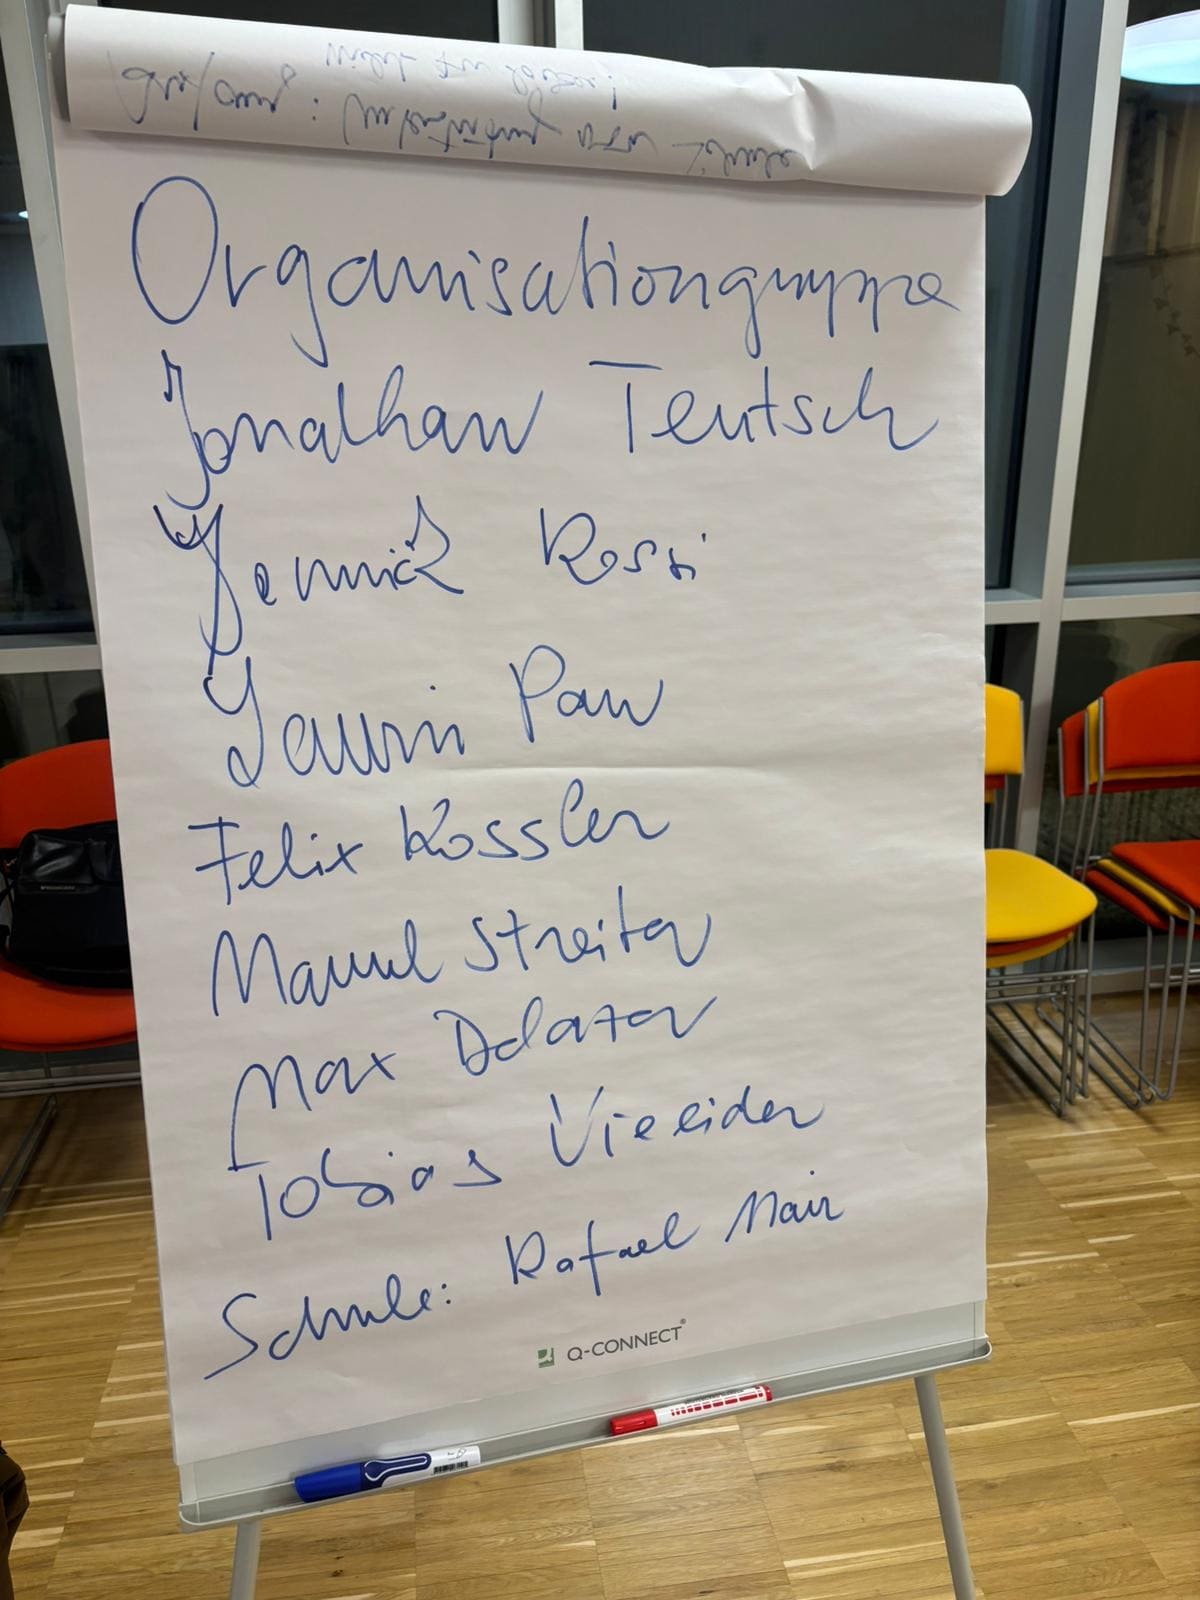 Organisationgruppe
Jonathan Teutsch
Jannick Rossi
Laurin Paw
Felix Kössler
Manuel Streiter
Max Delatar
Tobias Vieeider
Schule: Rafael Mair
Q-CONNECT